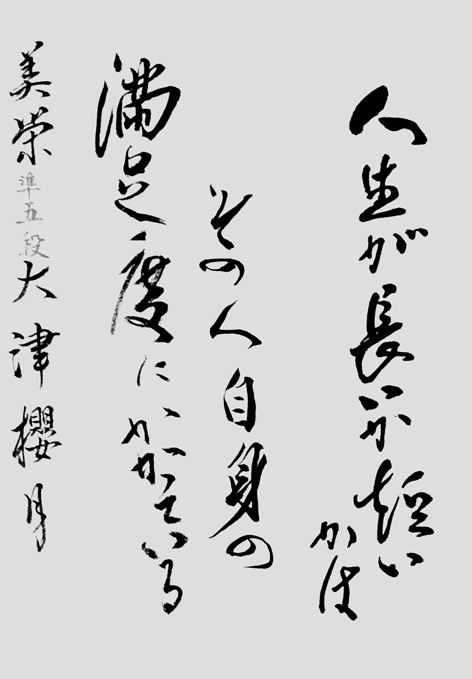 人生が長いか短い
かは
その人自身の
満足度にかかっている
美栄準五段大津櫻月